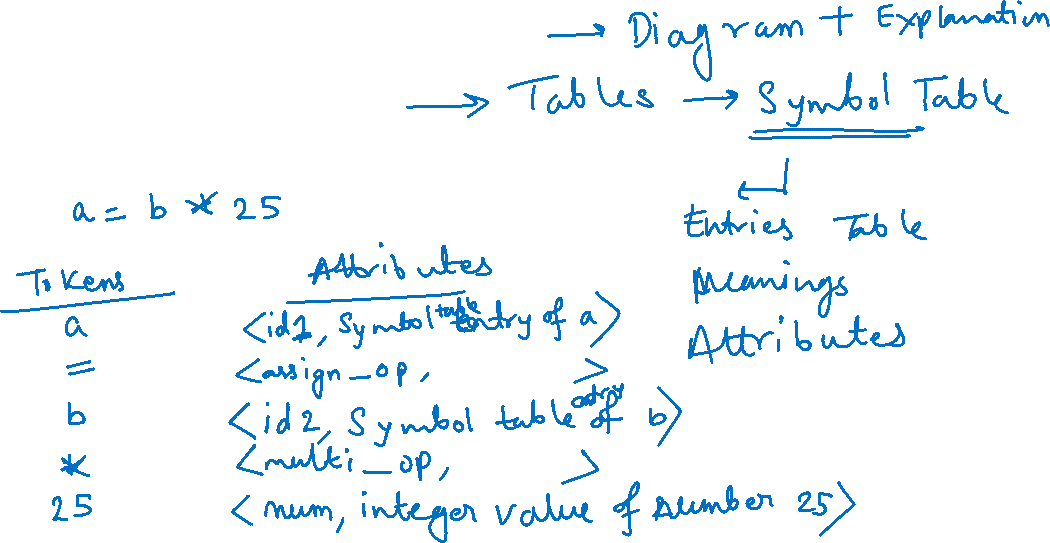 → Diagram + Explanation
→ Tables → Symbol Table
Entries Table
Meanings
Attributes
a = b * 25
Tokens Attributes
a <id1, Symbol table entry of a>
= <assign_op, >
b <id2, Symbol table entry of b>
* <multi_op, >
25 <num, integer value of number 25>